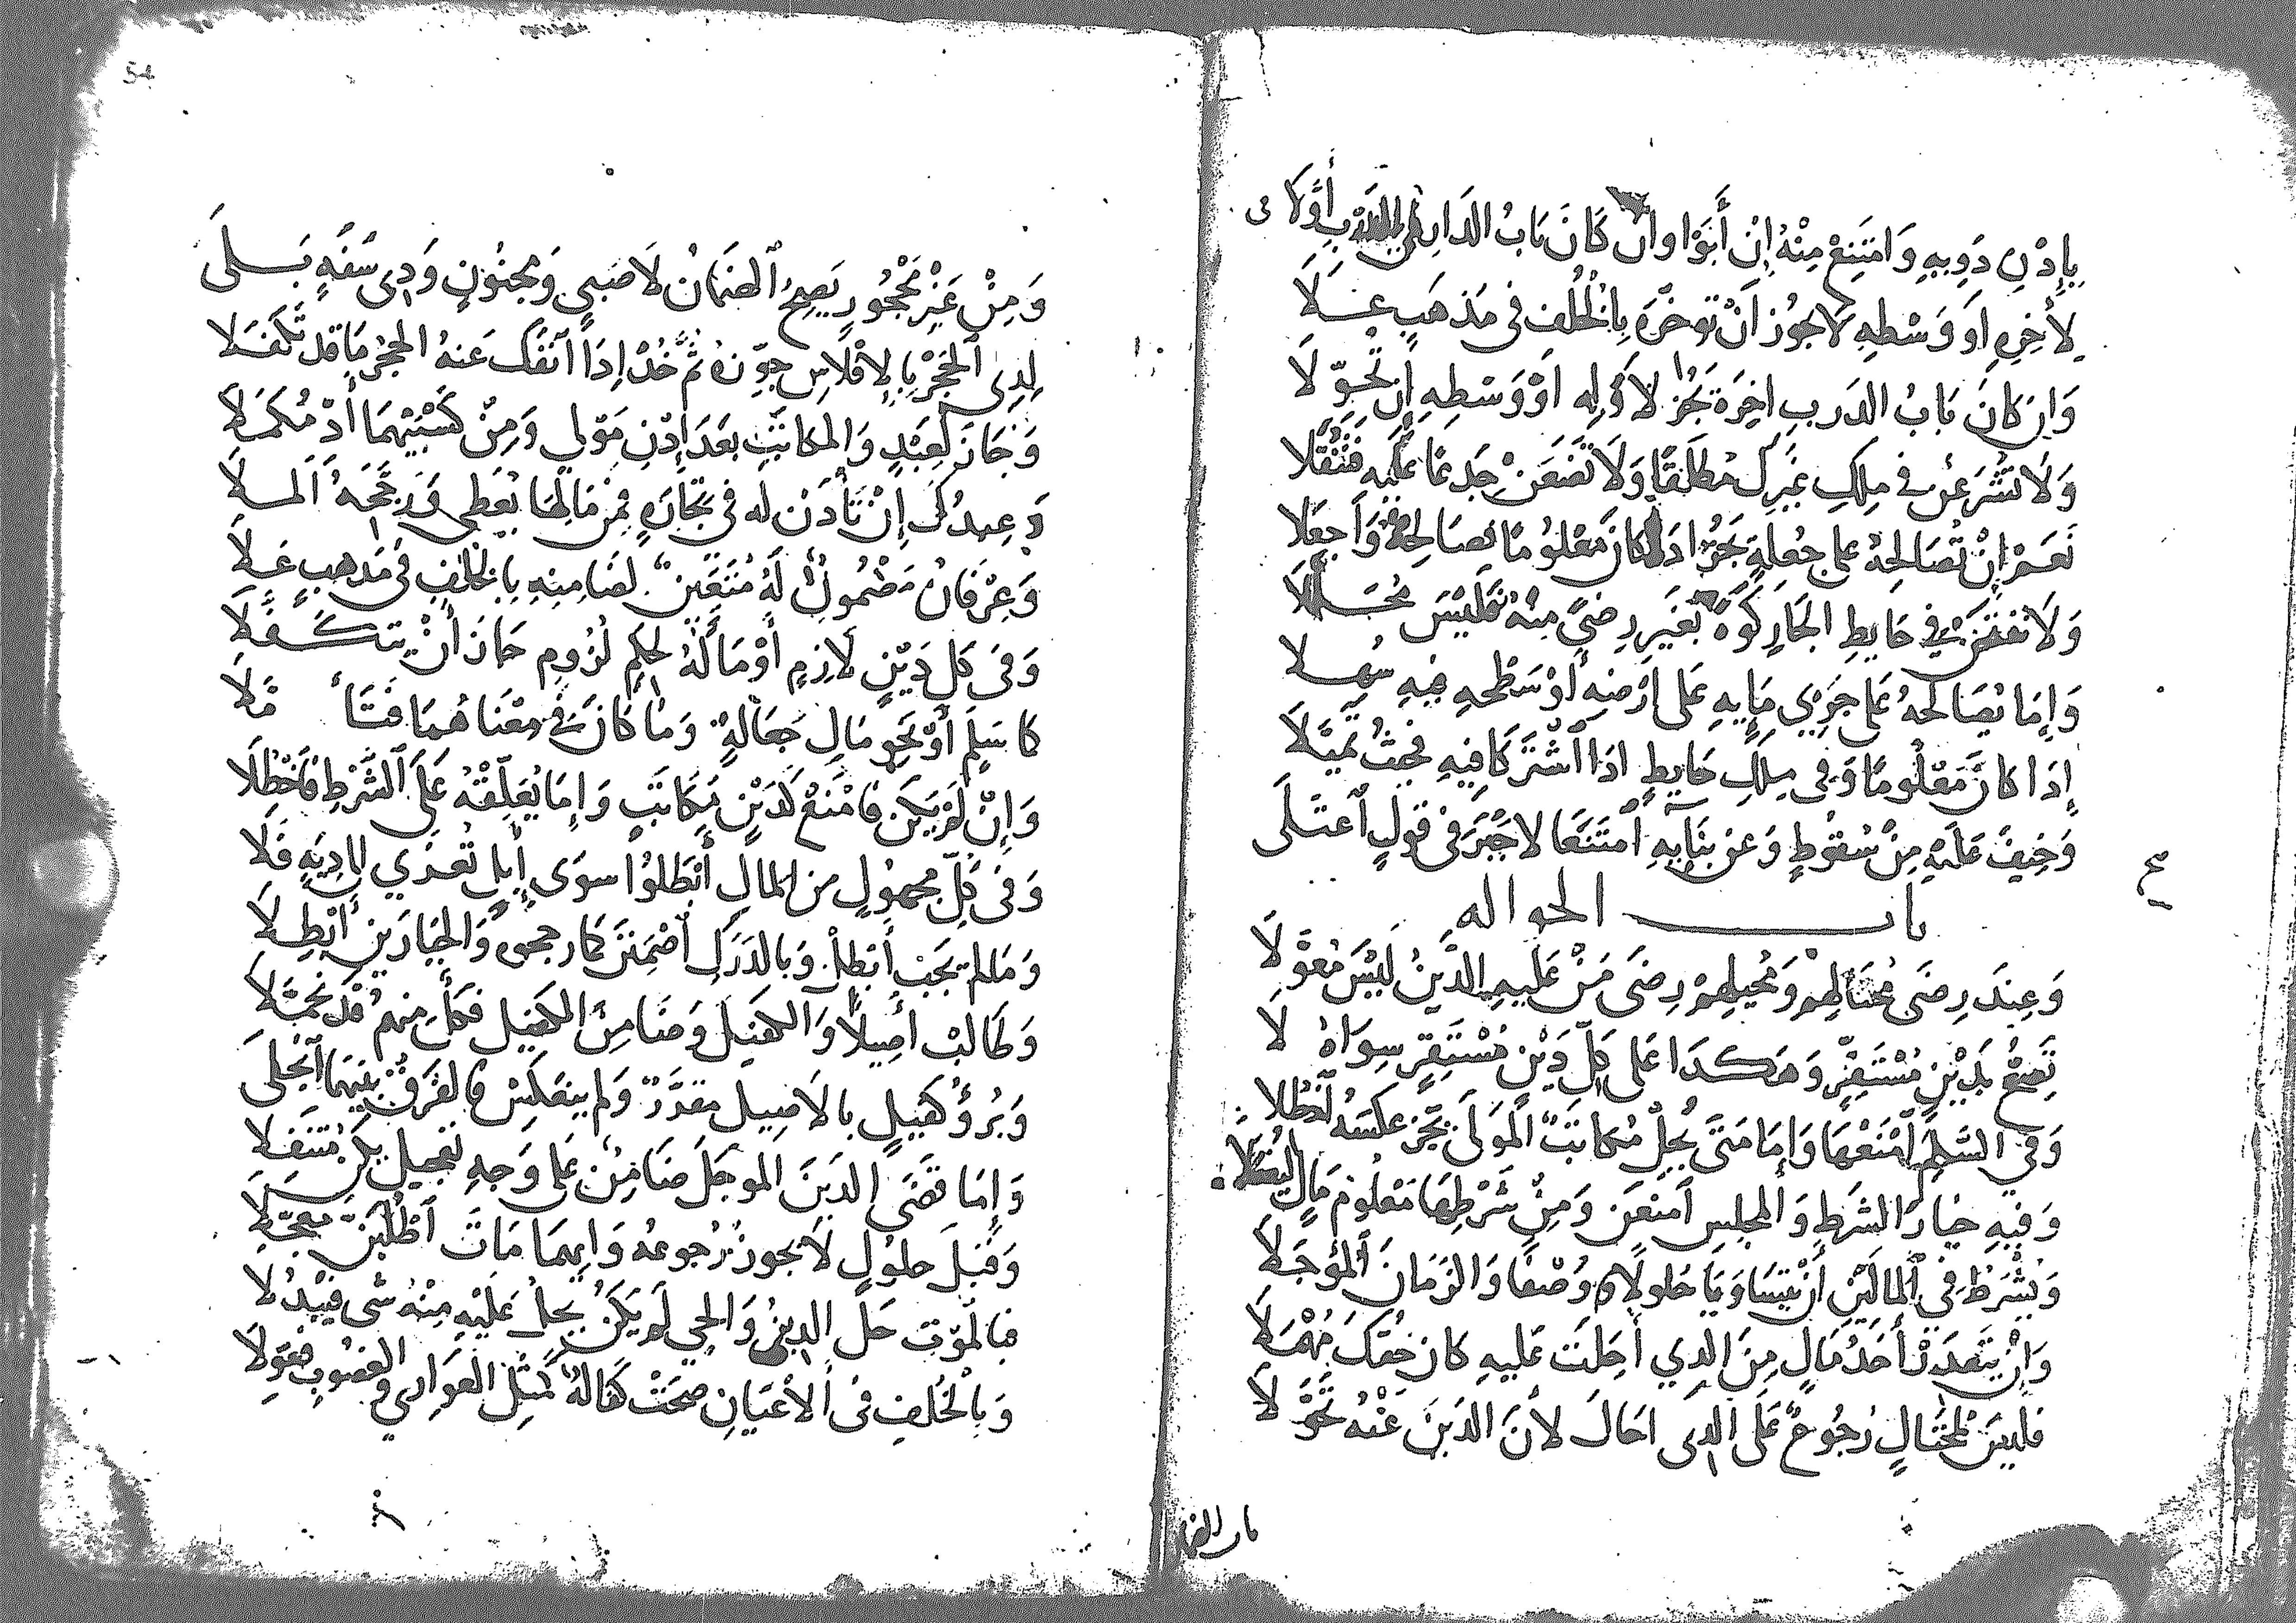 بِإِذْنِ ذَوِيهِ وَامْتَنِعْ مِنْهُ إِنْ أَبَوْا وان كَانَ بَابُ الدَارِ في الدَرْبِ أَوَّلَا
لِأَخِرِهِ أَو وَسْطِهِ لَا يَجُوز أَنْ تُوَخِّرَهُ بِالْخُلُفِ فى مَذهَبٍ عَــلَا
وَان كَانَ بَابُ الدَربِ اخِرَهُ يَجُز لَأوَّلِهِ اَوْ وَسْطِهِ إن تَحَوَّلَا
وَلَا تَشْرَعَنْ في مِلكِ غَيْرِكَ مُطلَقًا وَلَا تَضَعَنْ جِدعًا عَلَيهِ فَتُثْقِلَا
نَعَمْ إِنْ تُصَالِحهُ عَلى جُعلِهِ يَجُزْ اذا كَانَ مَعْلُومًا تُصَالِحهُ وَاجعَلَا
وَلَا تفتَحَنْ في حَايِطِ الجَارِ كُوَّةً بِغَيرِ رِضىً مِنْهُ فَلَيْسَ مُحَلَّلَا
وَإِمَّا تُصَالحهُ عَلى جَرْيِ مَايِهِ عَلى أَرْضِهِ أَوْ سَطْحِهِ فِيهِ سُهِلَا
إِذَا كَانَ مَعْلُومًا وَفى مِلكِ حَايطٍ اذَا اشْتَركَا فِيهِ فَحيثُ تَمَيَّلَا
وَخِيفَ عَلَيْهِ مِنْ سُقُوطٍ وَعن بِنَايِهِ امْتَنَعَا لا جَبْرَ فى قَولٍ اعتَلَى
صح
باب الحواله
وَعِندَ رِضَى مُحتَالِهِمْ وَمُحِيلِهِمْ رِضَى مَنْ عَليهِ الدَّينُ لَيْسَ مُعَوَّلَا
تَصِحُّ بِدَيْنٍ مُسْتَقِرٍّ وَهَكَذَا عَلى كُلِّ دَيْنٍ مُسْتَقِرٍّ سِوَاهُ لَا
وَفي السَّلِمْ امْنَعْهَا وَإِمَّا مَتَى يُحِلْ مُكَاتَبٌ المَولَى يَجُز عَكسُهُ احْظُلَا
وَفِيهِ خيَارَ الشَرطِ وَالمجلِسِ امنَعَن وَمِنْ شَرْطِهَا مَعْلُومُ مَالٍ ليُفعَلَا
وَيُشْرَطُ فِي المَالَينِ أَنْ يَتَسَاوَيَا حُلولًا وَوَصْفًا وَالزَمَانَ المُؤَجَّلَا
وَإِنْ يَتَعَذَّرْ أَخذُ مَالٍ مِنَ الذِي أُحِلتَ عَليهِ كَانَ حَقُّكَ مُهْمَلَا
فَليسَ لِمُحْتَالٍ رُجُوعٌ عَلَى الذِى احَالَ لأنَّ الدَينَ عَنْهُ تَحَوَّلَا
باب الضمان
54
وَمِنْ غَيْرِ مَحْجُورٍ يَصِحُّ الضَمَانُ لَا صَبِي وَمَجنُونٍ وَذِى سَفَهٍ بَــلَى
لِذِى الحَجْرِ بِالإِفْلَاسِ جَوِّزهُ ثُمَّ خُذْ إِذَا انفَكَّ عَنهُ الحَجْرُ مَا قد تَكَفَّلَا
وَجَازَ لِعَبْدٍ وَالمكاتَبِ بَعدَ إِذْنِ مَولى وَمِنْ كَسْبَيْهِمَا أَدِّ مُكمَلَا
وَعِبدُكَ إِنْ تَأْذَنْ لَه فى تِجَارَةٍ فَمِنْ مَالِهَا يُعْطى وَرَجَّحَهُ المَلَا
وَعِرْفَانُ مَضْمُونٍ لَهُ مُتَعَيِّنٌ لِضَامِنِهِ بِالخُلفِ فى مَذهَبٍ عَلَا
وَفى كُلِ دَيْنٍ لَازِمٍ أَوْ مَا لَهُ لِحُكمِ لُزُومٍ جَازَ أَنْ يَتَكَفَّلَا
كَا سَلِمٍ أَوْ نَحوِ مَالِ جَعَالَةٍ وَمَا كَانَ فِي مَعْنَاهُمَا فَتَأَمَّلَا
وَإِنْ لَمْ يَكُنْ فَامْنَعْ كَدَيْنِ مُكَاتَبٍ وَإِمَّا يُعَلِّقْهُ عَلَى الشَّرْطِ فَاحْظُلَا
وَفى كُلِّ مَجهُولٍ مِن المالِ أَبْطَلُوا سِوَى إِبِلٍ تُعزَي الى دِيَةٍ فَلَا
وَمَا لم يَجِبْ أَبْطِلْ وَبِالدَرَكِ اضْمَنَنْ كَمَا رجحوه وَالخيَارَينِ أَبْطِلَا
وَطَالِبْ أَصِيلًا وَالكفِيلَ وَضَامِنَ الكَفِيلِ فَكُلٌّ مِنهُمُ قَدْ تَحَمَّلَا
وَبُرؤُ كَفِيلٍ بالأَصِيلِ مقَدَّرٌ وَلم يَنعَكِسْ فَالفَرقُ بينَهَما انْجَلَى
وَإِمَّا قَضَى الدَينَ الموجَّلَ ضَامِنٌ عَلى وَجهِ تَعجيلٍ يَكنْ مُتَنَفِّلَا
وَقَبلَ حلُولٍ لَا يَجوزُ رُجوعُهُ وَايهمَا مَاتَ اطْلُبَنَّ مُعَجَّلَا
فَبِالمَوْتِ حَلَّ الدينُ وَالحي لَم يَكُن يَحِلُّ عَلَيْهِ مِنْهُ شى فَيُبْدُلَا
وَبِالْخُلفِ فى الأَعْيَانِ صَحَّتْ كفَالَةٌ كَمِثْلِ العَوَارِي وَالغصُوبِ فَعَوِّلَا